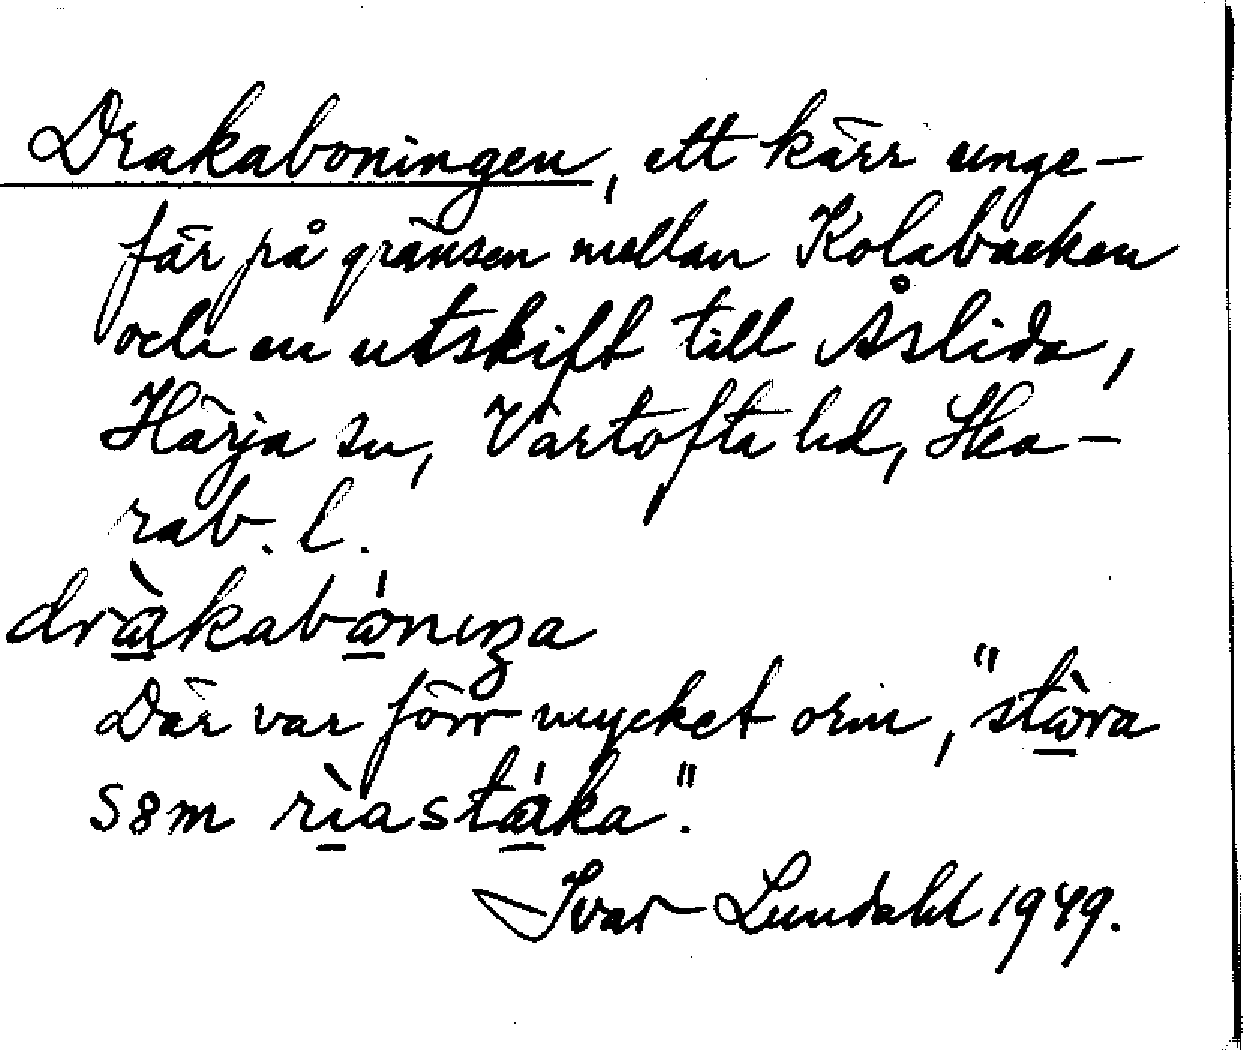 Drakaboningen, ett kärr unge-
fär på gränsen mellan Kolabacken
och en utskift till Åslida,
Härja sn, Vartofta hd, Ska-
rab. l.
dràkabóniŋa
Där var förr mycket orm, "stòra
som rìastáka".
Ivar Lundahl 1949.